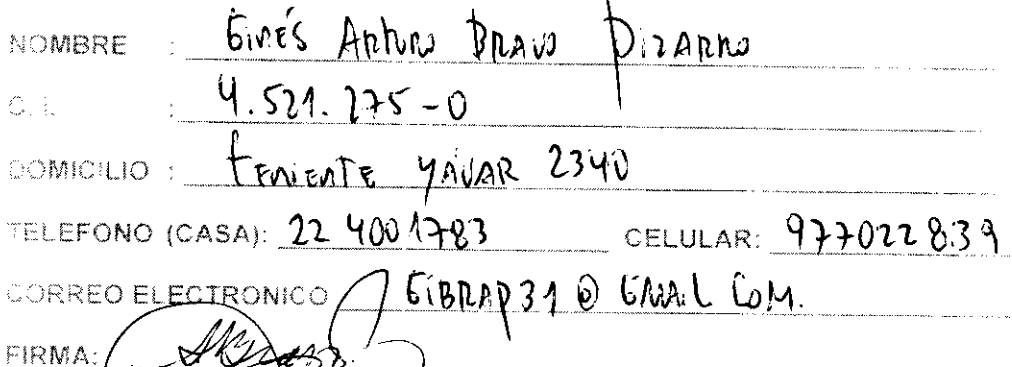 NOMBRE : Ginés Arturo Bravo Pizarro
C. I. : 4.521.275-0
DOMICILIO : Teniente YAVAR 2340
TELEFONO (CASA): 22 4001783 CELULAR: 977022839
CORREO ELECTRONICO GIBRAP31 @ GMAIL COM.
FIRMA: